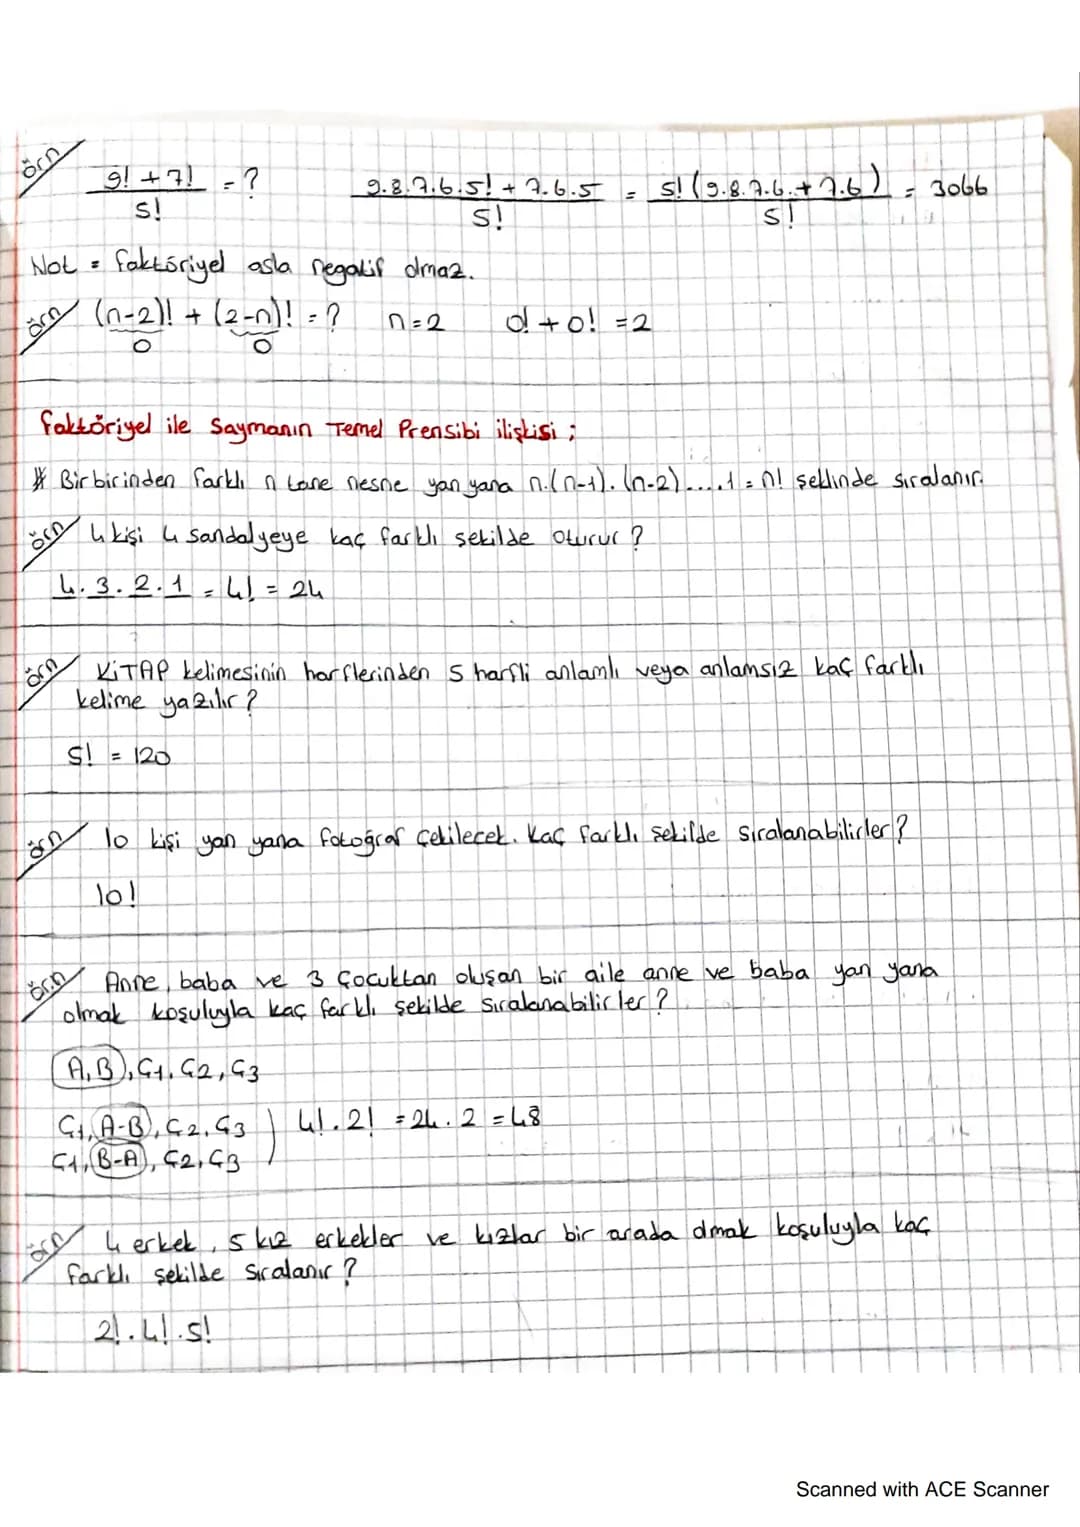 örn 9!+7! / 5! = ? 9.8.7.6.5! + 7.6.5 / 5! = 5!(9.8.7.6.+7.6) / 5! = 3066
Not = faktöriyel asla negatif olmaz.
örn (n-2)! + (2-n)! = ? n=2 0!+0! =2
0 0
faktöriyel ile Saymanın Temel Prensibi ilişkisi ;
* Birbirinden farklı n tane nesne yan yana n.(n-1).(n-2)....1 = n! şeklinde sıralanır.
örn 4 kişi 4 sandalyeye kaç farklı şekilde oturur ?
4.3.2.1 = 4! = 24
örn KİTAP kelimesinin harflerinden 5 harfli anlamlı veya anlamsız kaç farklı
kelime yazılır ?
5! = 120
örn 10 kişi yan yana fotoğraf çekilecek. Kaç farklı şekilde sıralanabilirler ?
10!
örn Anne, baba ve 3 çocuktan oluşan bir aile anne ve baba yan yana
olmak koşuluyla kaç farklı şekilde sıralanabilirler ?
(A,B),Ç1,Ç2,Ç3
Ç1,(A-B),Ç2,Ç3 ) 4!.2! = 24.2 = 48
Ç1,(B-A),Ç2,Ç3
örn 4 erkek, 5 kız erkekler ve kızlar bir arada olmak koşuluyla kaç
farklı şekilde sıralanır ?
2!.4!.5!
Scanned with ACE Scanner